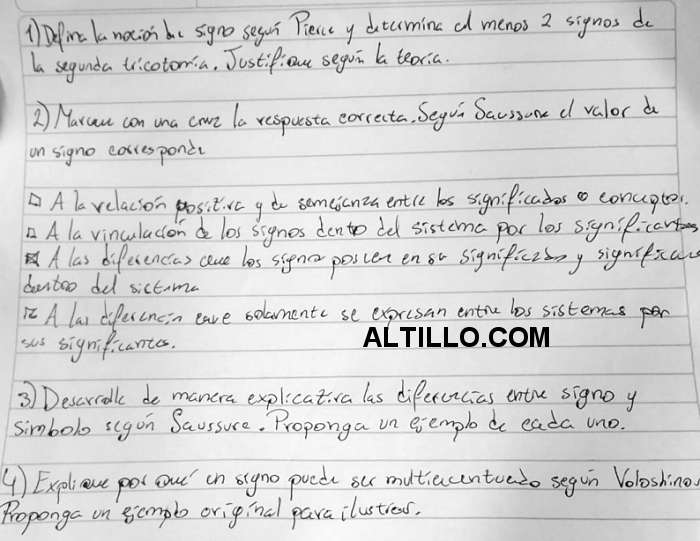 1) Defina la noción de signo según Pierce y determina al menos 2 signos de
la segunda tricotomía. Justifique según la teoría.
2) Marque con una cruz la respuesta correcta. Según Saussure el valor de
un signo corresponde
□ A la relación positiva y de semejanza entre los significados o conceptos.
□ A la vinculación de los signos dento del sistema por los significantes
☒ A las diferencias que los signos poseen en su significado y significan
dentro del sistema
□ A las diferencia que solamente se expresan entre los sistemas por
sus significantes.
ALTILLO.COM
3) Desarrolle de manera explicativa las diferencias entre signo y
símbolo según Saussure. Proponga un ejemplo de cada uno.
4) Explique por qué un signo puede ser multiacentuado según Voloshinov.
Proponga un ejemplo original para ilustrar.